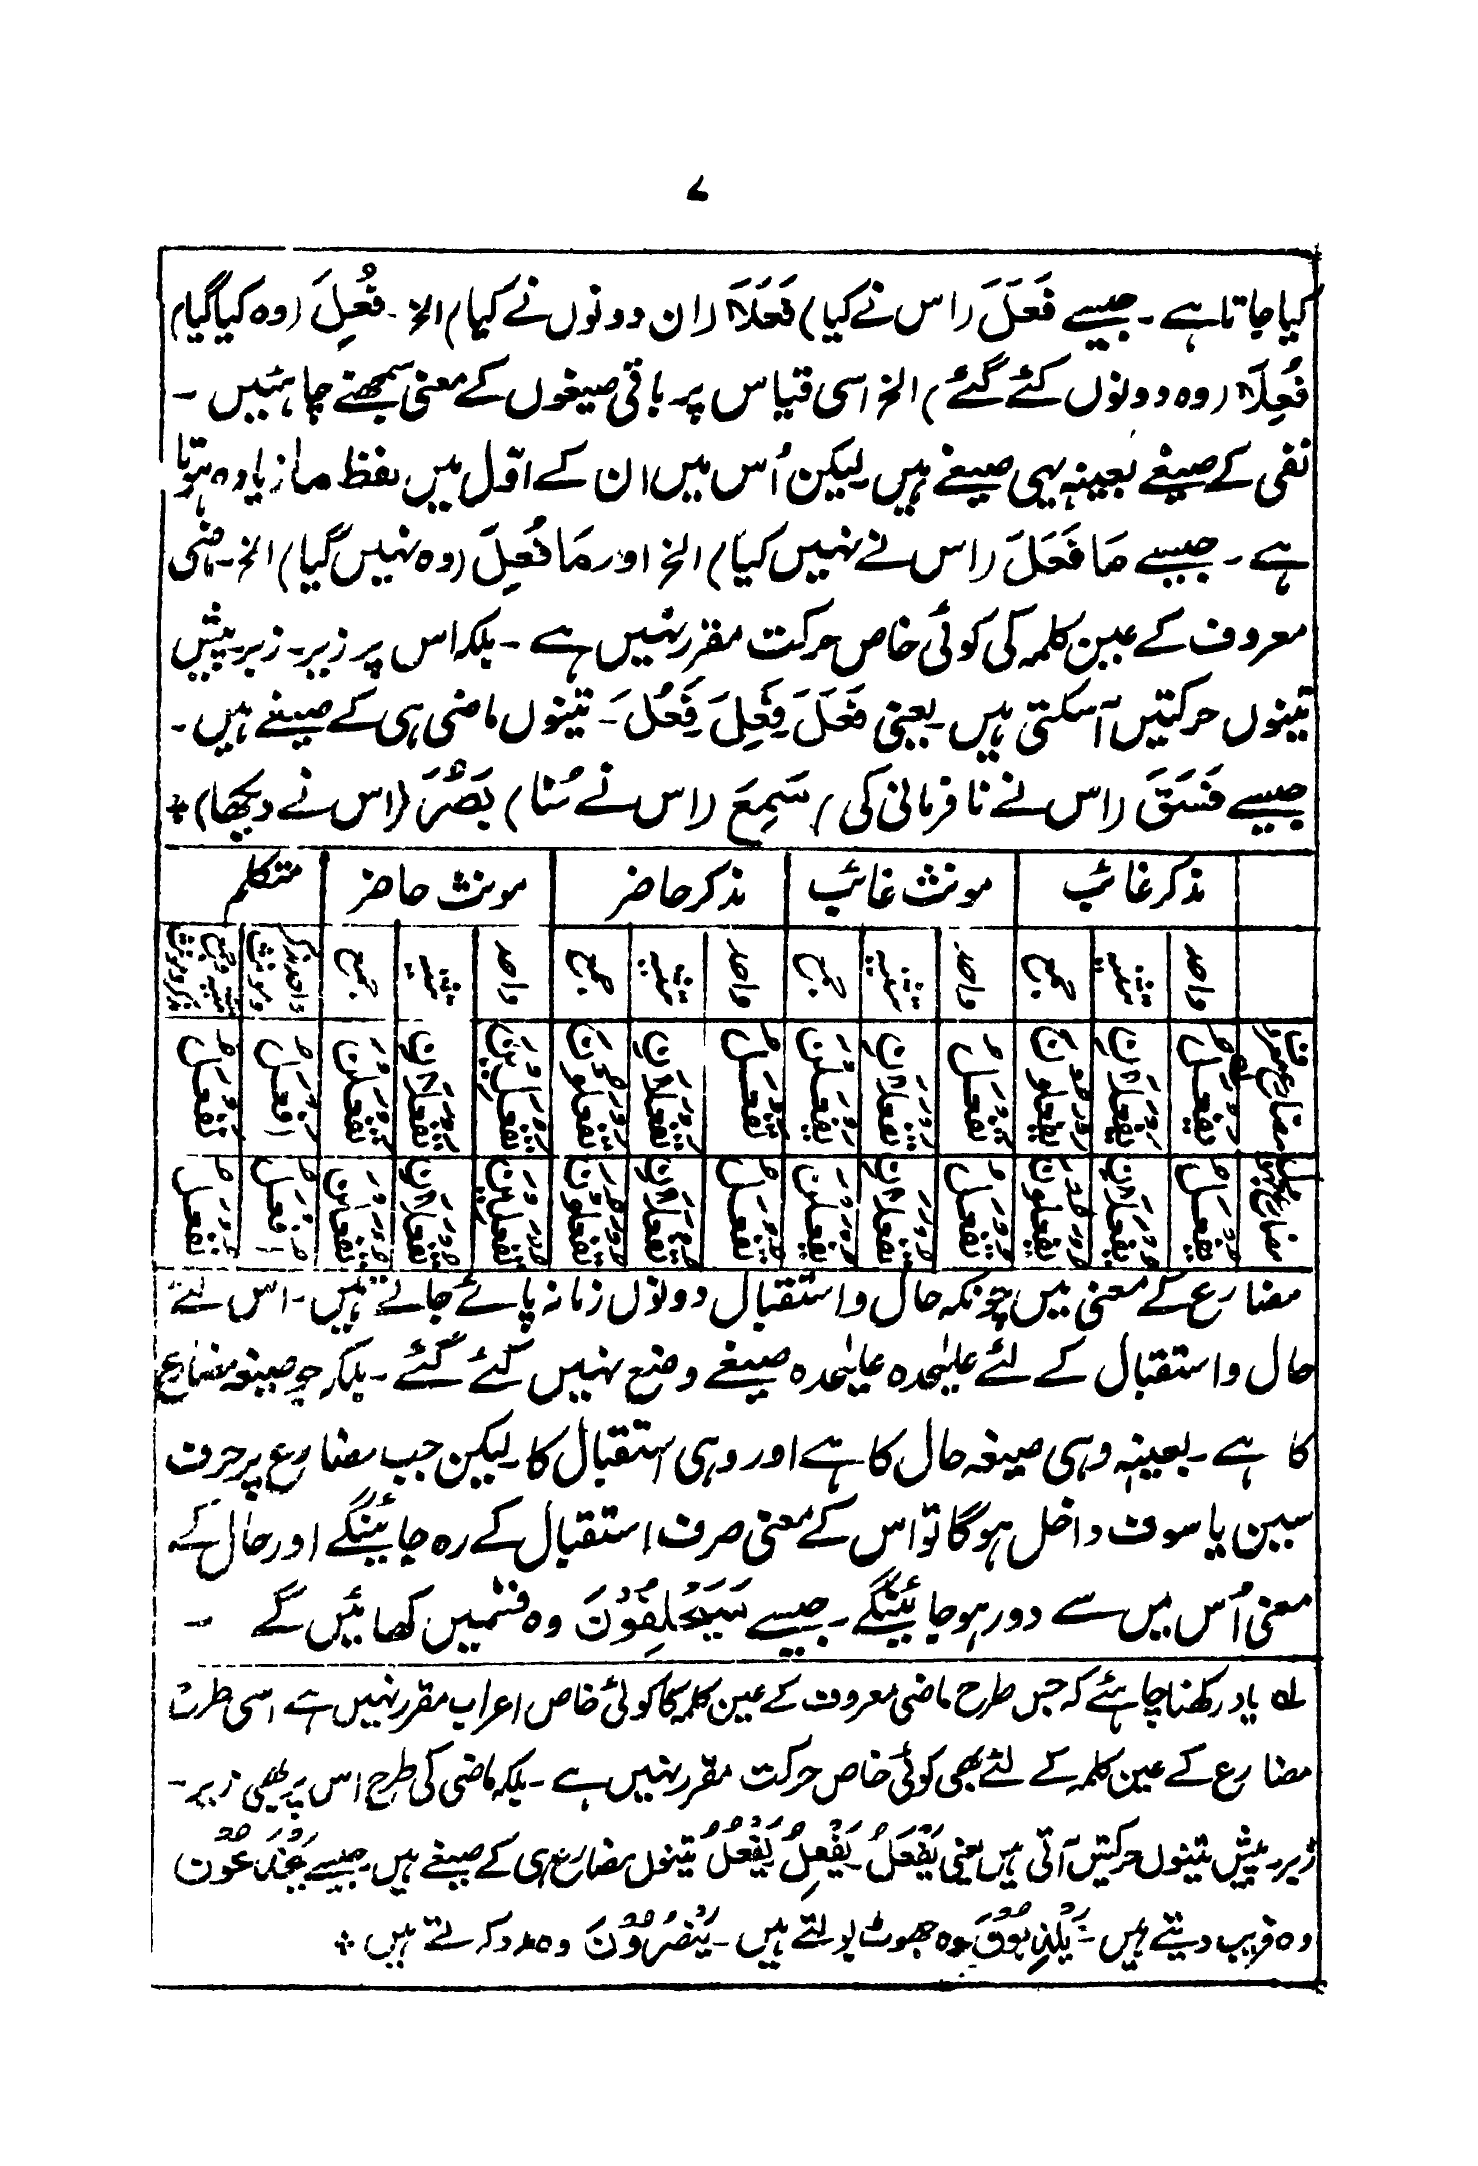 ۷
کیا جاتا ہے۔ جیسے فَعَلَ (اس نے کیا) فَعَلَا (ان دونوں نے کیا) الخ۔ فُعِلَ (وہ کیا گیا)
فُعِلَا (وہ دونوں کئے گئے) الخ اسی قیاس پر باقی صیغوں کے معنی سمجھنے چاہئیں ۔
نفی کے صیغے بعینہٖ یہی صیغے ہیں۔ لیکن اُس میں ان کے اوّل میں لفظ ما زیادہ ہوتا
ہے ۔ جیسے مَا فَعَلَ (اس نے نہیں کیا) الخ اور مَا فُعِلَ (وہ نہیں کیا گیا) الخ۔ ماضی
معروف کے عین کلمہ کی کوئی خاص حرکت مقرر نہیں ہے ۔ بلکہ اس پر زبر۔ زیر۔ پیش
تینوں حرکتیں آسکتی ہیں۔ یعنی فَعَلَ فَعِلَ فَعُلَ ۔ تینوں ماضی ہی کے صیغے ہیں ۔
جیسے فَسَقَ (اس نے نافرمانی کی) سَمِعَ (اس نے سُنا) بَصُرَ (اس نے دیکھا) ❊
مذکر غائب مونث غائب مذکر حاضر مونث حاضر متکلم
واحد تثنیہ جمع واحد تثنیہ جمع واحد تثنیہ جمع واحد تثنیہ جمع واحد مذکر و مونث تثنیہ و جمع مذکر و مونث
مضارع معروف یَفْعَلُ یَفْعَلَانِ یَفْعَلُونَ تَفْعَلُ تَفْعَلَانِ یَفْعَلْنَ تَفْعَلُ تَفْعَلَانِ تَفْعَلُونَ تَفْعَلِینَ تَفْعَلَانِ تَفْعَلْنَ اَفْعَلُ نَفْعَلُ
مضارع مجہول یُفْعَلُ یُفْعَلَانِ یُفْعَلُونَ تُفْعَلُ تُفْعَلَانِ یُفْعَلْنَ تُفْعَلُ تُفْعَلَانِ تُفْعَلُونَ تُفْعَلِینَ تُفْعَلَانِ تُفْعَلْنَ اُفْعَلُ نُفْعَلُ
مضارع کے معنی میں چونکہ حال و استقبال دونوں زمانہ پائے جاتے ہیں۔ اس لئے
حال و استقبال کے لئے علیٰحدہ علیٰحدہ صیغے وضع نہیں کئے گئے ۔ بلکہ جو صیغہ مضارع
کا ہے ۔ بعینہٖ وہی صیغہ حال کا ہے اور وہی استقبال کا۔ لیکن جب مضارع پر حرف
سین یا سوف داخل ہوگا تو اس کے معنی صرف استقبال کے رہ جائینگے اور حال کے
معنی اُس میں سے دور ہو جائینگے ۔ جیسے سَیَحْلِفُوْنَ وہ قسمیں کھائیں گے ۔
لہ یاد رکھنا چاہئے کہ جس طرح ماضی معروف کے عین کلمہ کا کوئی خاص اعراب مقرر نہیں ہے اسی طرح
مضارع کے عین کلمہ کے لئے بھی کوئی خاص حرکت مقرر نہیں ہے ۔ بلکہ ماضی کی طرح اس پر بھی زبر۔
زیر۔ پیش تینوں حرکتیں آتی ہیں یعنی یَفْعَلُ۔ یَفْعِلُ یَفْعُلُ تینوں مضارع ہی کے صیغے ہیں۔ جیسے یَخْدَعُوْنَ
وہ فریب دیتے ہیں ۔ یَکْذِبُوْنَ وہ جھوٹ بولتے ہیں ۔ یَنْصُرُوْنَ وہ مدد کرتے ہیں ❊